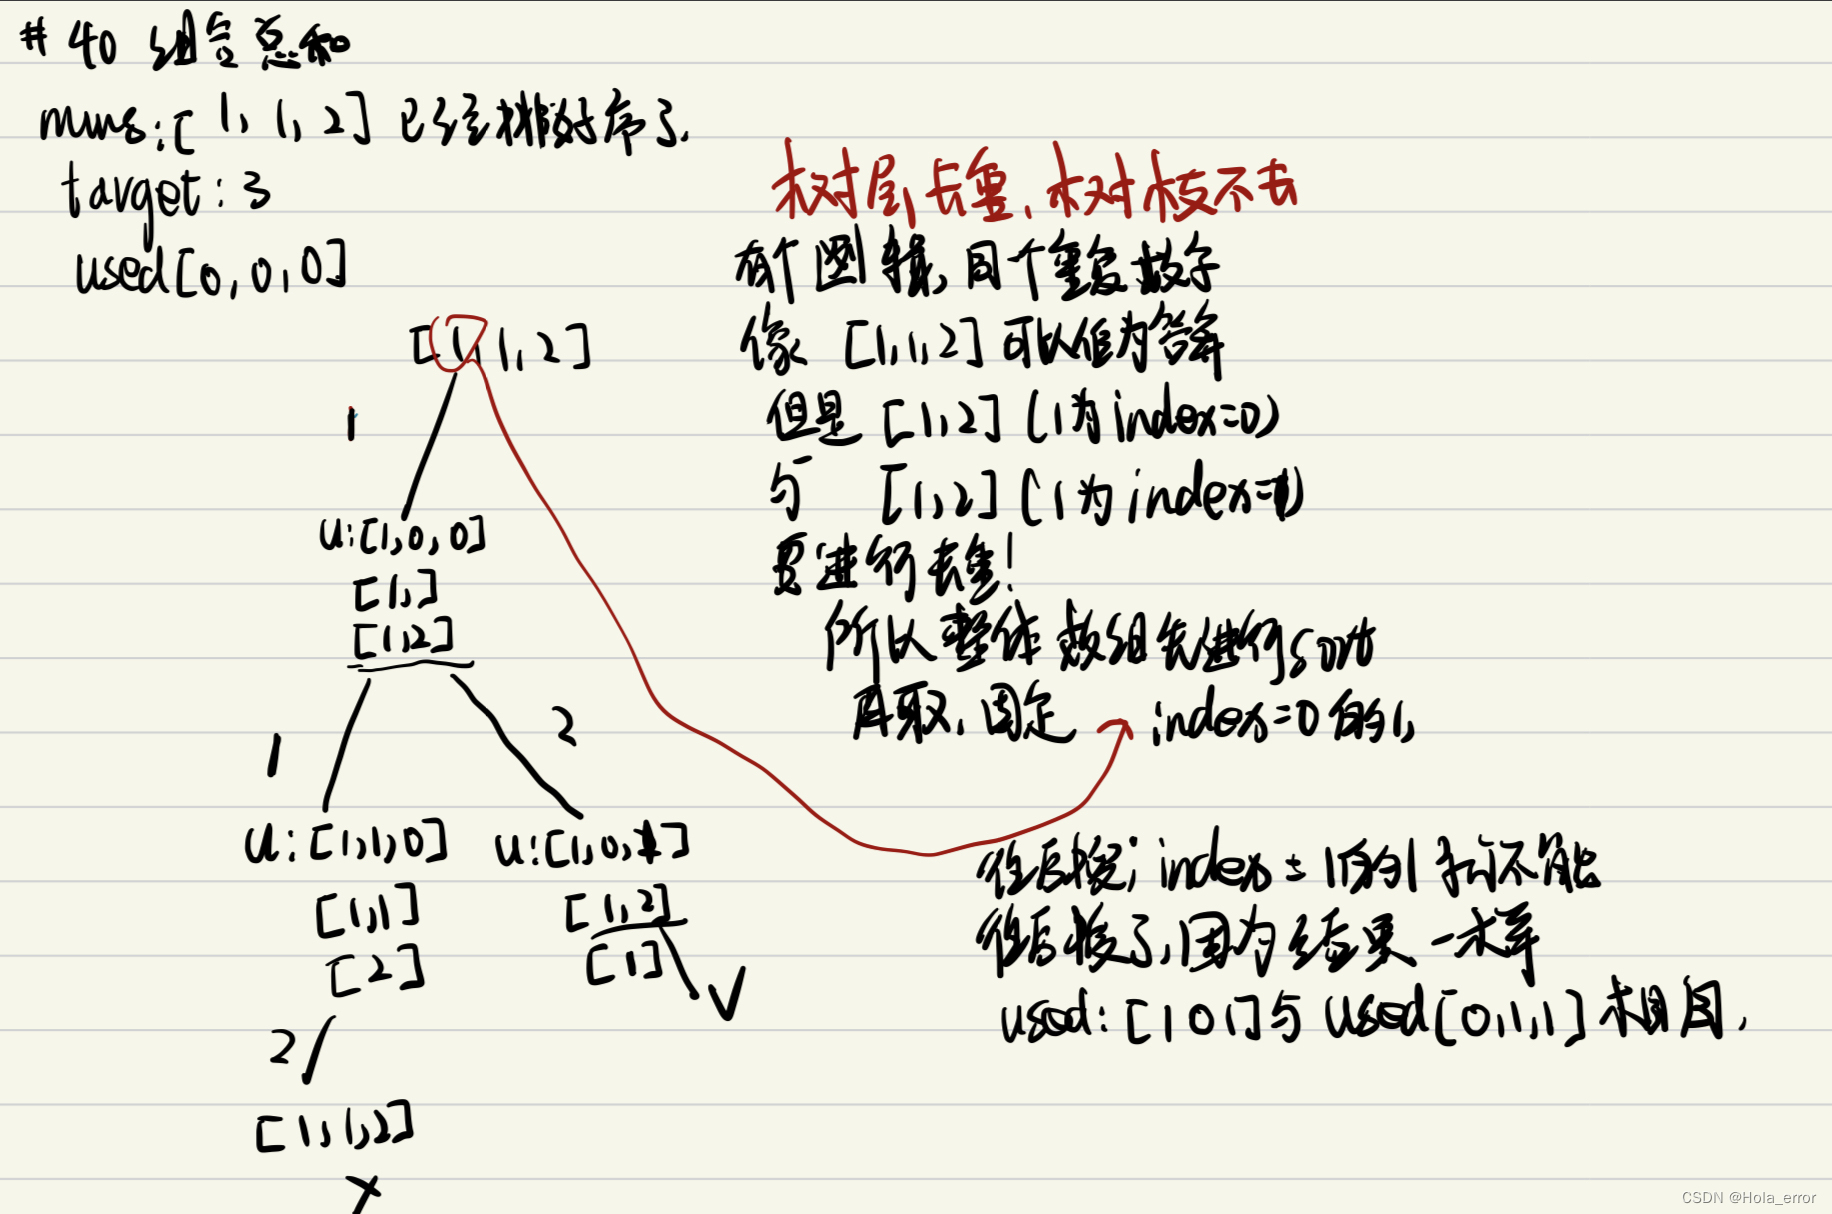 # 40 组合总和
nums:[1,1,2] 已经排好序了.
target:3
used[0,0,0]
树层去重,树枝不去
有个逻辑,同个重复数字
像 [1,1,2] 可以值为答案
但是 [1,2] (1为index=0)
与 [1,2] (1为index=1)
要进行去重!
所以整体数组先进行sort
再取,固定 index=0的1,
往后搜; index=1的1就不能
往后搜了,因为结果一样
used:[1 0 1]与used[0,1,1]相同,
[1,1,2]
1
u:[1,0,0]
[1,]
[1,2]
1
2
u:[1,1,0]
u:[1,0,1]
[1,1]
[1,2]
[2]
[1]
√
2
[1,1,2]
×
CSDN @Hola_error